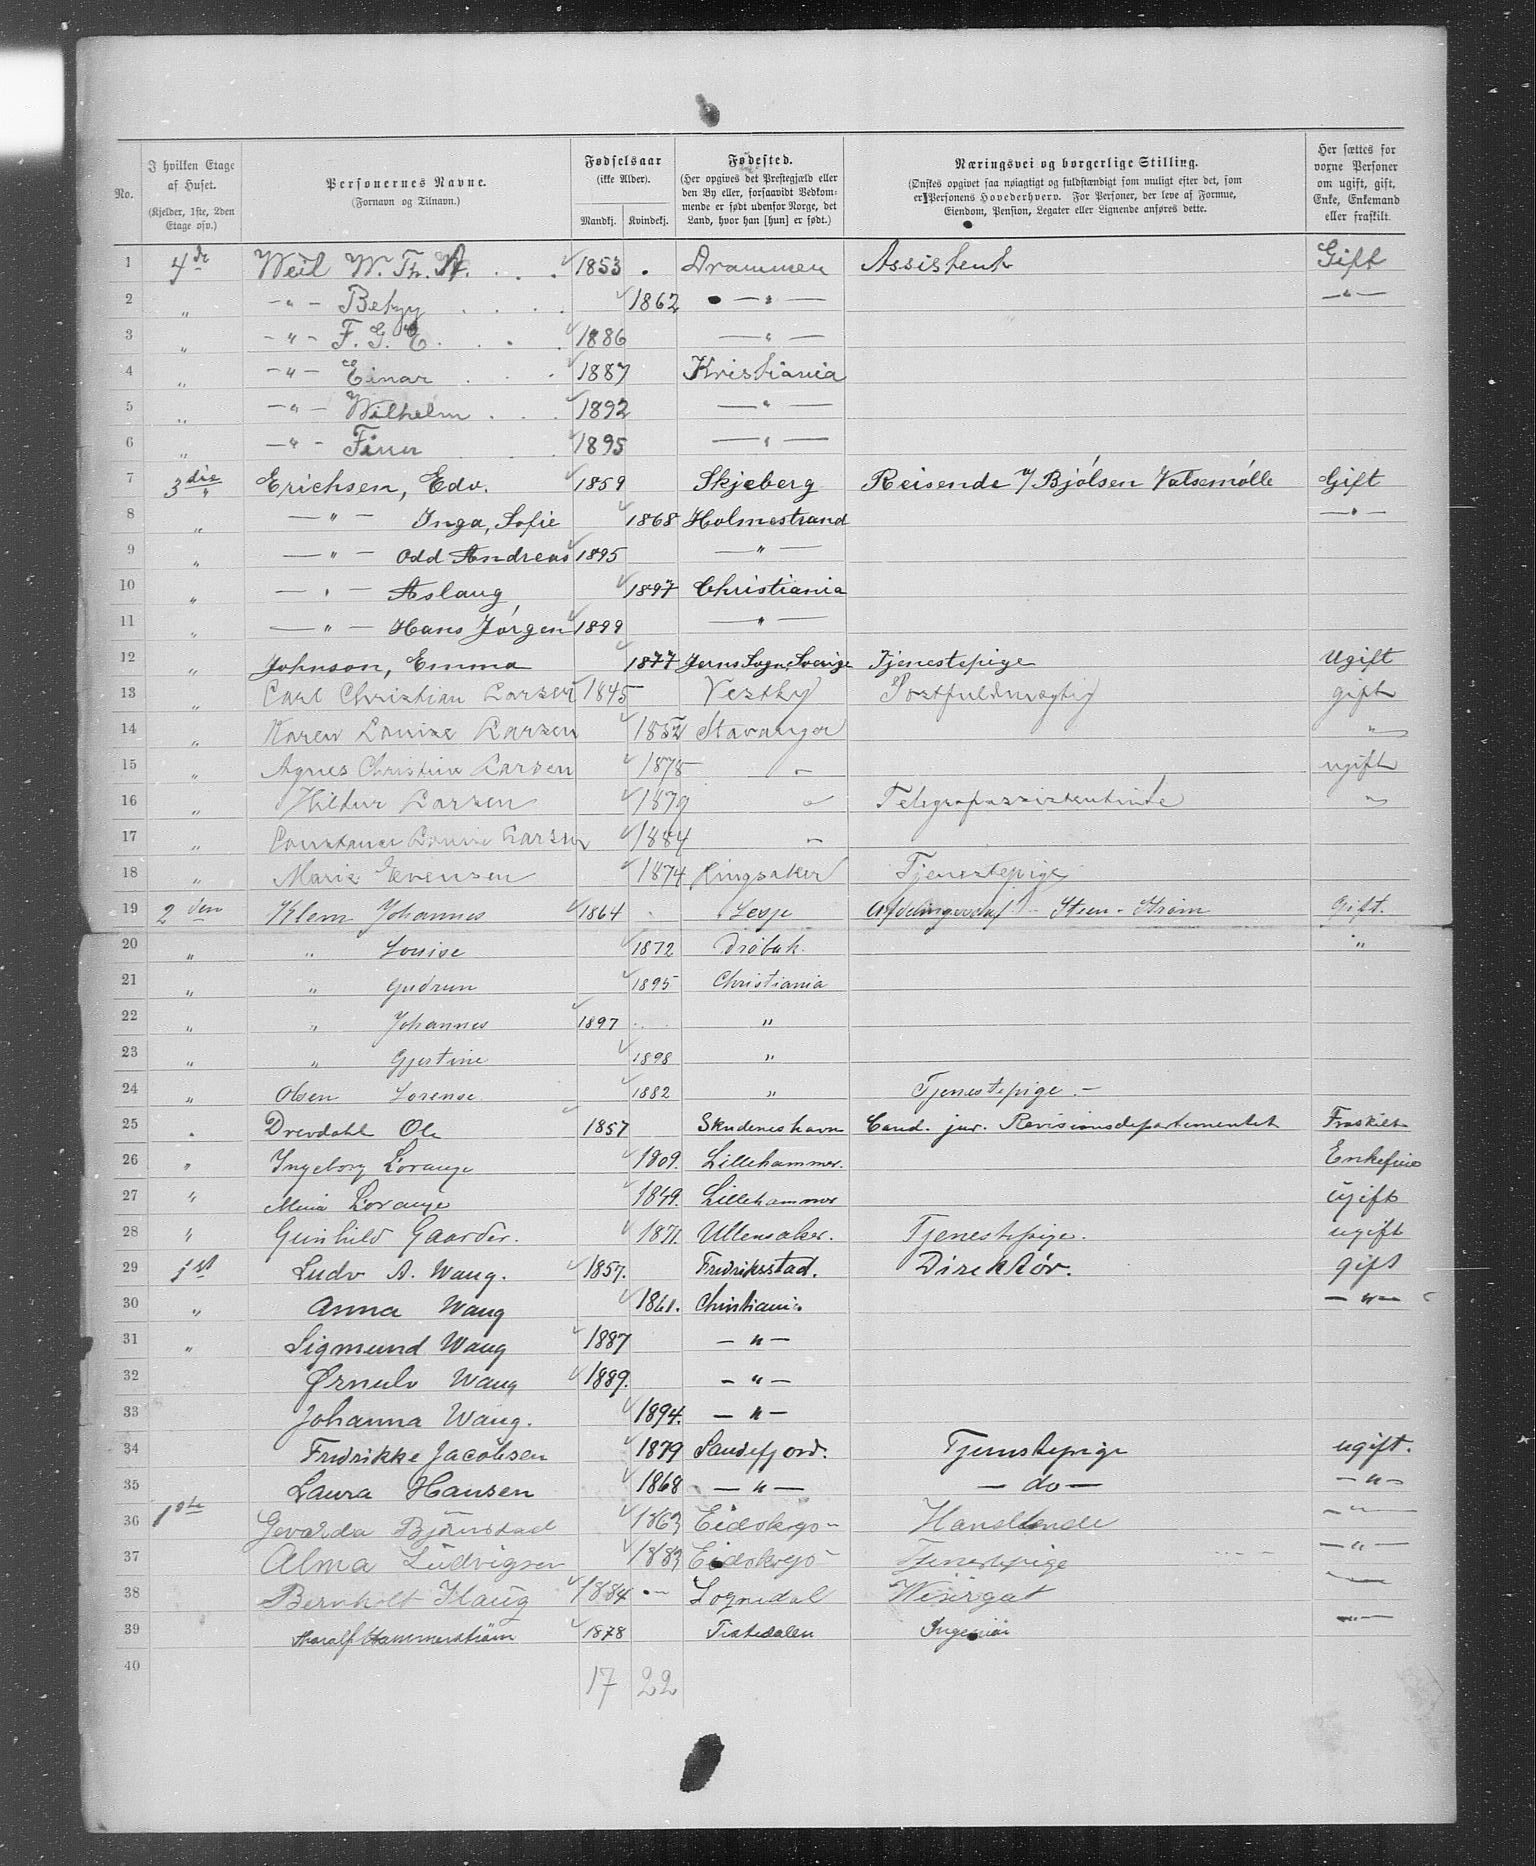 No.
I hvilken Etage af Huset.
(Kjelder, 1ste, 2den Etage osv.)
Personernes Navne.
(Fornavn og Tilnavn.)
Fødselsaar
(ikke Alder).
Mandkj. Kvindekj.
Fødested.
(Her opgives det Prestegjæld eller den By eller, forsaavidt Vedkommende er født udenfor Norge, det Land, hvor han [hun] er født.)
Næringsvei og borgerlige Stilling.
(Ønskes opgivet saa nøiagtigt og fuldstændigt som muligt efter det, som er Personens Hovederhverv. For Personer, der leve af Formue, Eiendom, Pension, Legater eller Lignende anføres dette.
Her sættes for voxne Personer om ugift, gift, Enke, Enkemand eller fraskilt.
1 4de Weil W. Th. A. 1853 Drammen Assistent Gift
2 " -"- Betzy 1862 -"- -"-
3 " -"- F. G. E. 1886 -"-
4 " -"- Einar 1887 Kristiania
5 " -"- Wilhelm 1892 -"-
6 " -"- Finn 1895 -"-
7 3die Erichsen, Edv. 1859 Skjeberg Reisende v/ Bjølsen Valsemølle Gift
8 " -"- Inga, Sofie 1868 Holmestrand -"-
9 " -"- Odd Andreas 1895 -"-
10 " -"- Aslaug 1897 Christiania
11 " -"- Hans Jørgen 1899 -"-
12 " Johnson, Emma 1877 Sogn, Sverige Tjenestepige Ugift
13 " Carl Christian Larsen 1845 Vestby Postfuldmægtig gift
14 " Karen Louise Larsen 1852 Stavanger "
15 " Agnes Christine Larsen 1878 " ugift
16 " Hildur Larsen 1879 " Telegrafassistentinde "
17 " Constance Louise Larsen 1884 "
18 " Marie Evensen 1874 Ringsaker Tjenestepige
19 2den Klem Johannes 1864 Lesje Steen - Strøm Gift.
20 " " Louise 1872 Drøbak. "
21 " " Gudrun 1895 Christiania
22 " " Johannes 1897 "
23 " " Gjertine 1898 "
24 " Olsen Lorense 1882 " Tjenestepige. -
25 " Drevdahl Ole 1857 Skudeneshavn Cand. jur. Revisionsdepartementet Fraskilt
26 " Ingeborg Lorange 1809. Lillehammer. Enkefrue
27 " Mina Lorange 1849. Lillehammer Ugift
28 " Gunhild Gaarder. 1871. Ullensaker. Tjenestepige. ugift
29 1st Ludv A. Waug. 1857. Fredriksstad. Direktør. gift
30 " Anna Waug 1861. Christiania -"-
31 " Sigmund Waug 1887 -"-
32 Ørnulv Waug 1889. -"-
33 Johanna Waug. 1894. -"-
34 Fredrikke Jacobsen 1879 Sandefjord. Tjenestepige ugift.
35 Laura Hansen 1868 -"- -do- -"-
36 1ste Gevarda Bjørnstad 1863 Eidskog Handlende -"-
37 Alma Ludvigsen 1883 Eidskog Tjenestepige -"-
38 Bernholt Haug 1884 Sogndal Visergut
39 Hammerstrøm 1878 Tistedalen Ingeniør -"-
40
17 22